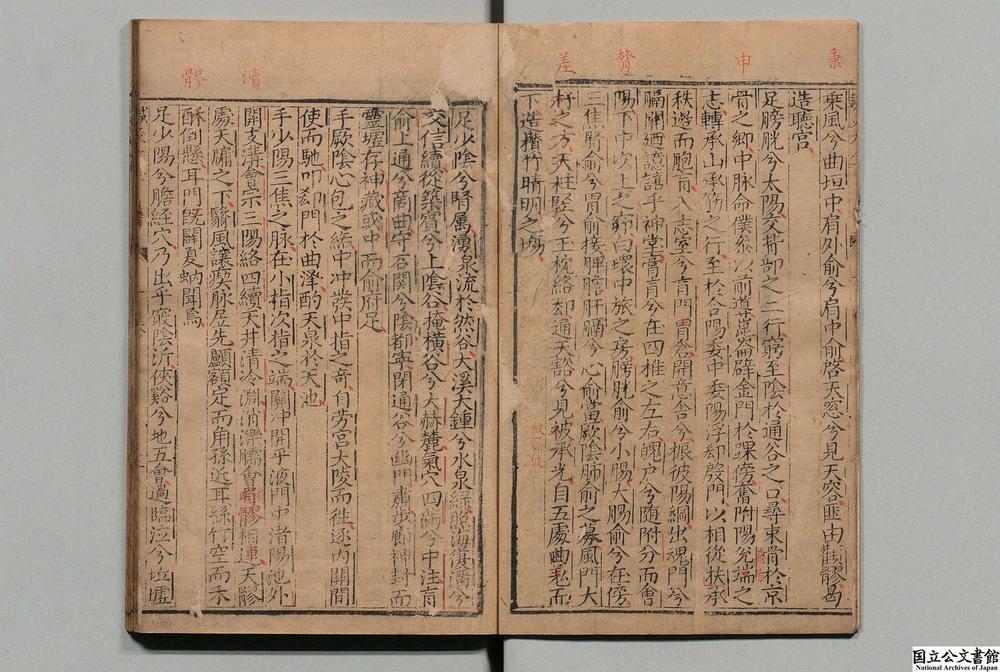 秉 申 膂 差
乘風兮曲垣中肩外俞兮肩中俞啓天窓兮見天容匪由觀髎曷
造聽宮
足膀胱兮太陽交背部之二行窮至陰於通谷之口尋束骨於京
骨之鄉申脉命僕參以前導崑崙闢金門於踝傍奮附陽允端之
志轉承山承筋之行至於合陽委中委陽浮却殷門以相從扶承
秩邊而胞肓入志室兮肓門胃倉開意舍兮振彼陽綱出魂門兮
膈關廼譩譆乎神堂膏肓兮在四椎之左右魄戶兮隨附分而會
陽下中次上之窌白環中旅之房膀胱俞兮小腸大腸俞兮在傍
三焦腎俞兮胃俞接脾膽肝膈兮心俞當厥陰肺俞之募風門大
杼之方天柱堅兮玉枕絡却通天豁兮見彼承光自五處曲差而
下造攢竹睛明之場
瀆 髎
足少陰兮腎屬湧泉流於然谷大溪大鍾兮水泉緑照海復溜兮
交信續從築賓兮上陰谷掩橫谷兮大赫麓氣穴四滿兮中注肓
俞上通兮商曲守石關兮陰都寧閉通谷兮幽門肅步郎神封而
靈墟存神藏或中而俞府足
手厥陰心包之絡中冲發中指之奇自勞宮大陵而往逐內關間
使而馳叩郄門於曲澤酌天泉於天池
手少陽三焦之脉在小指次指之端關冲開乎液門中渚陽池外
開支溝會宗三陽絡四續天井清冷淵消濼臑會肩髎相連天髎
處天牖之下翳風讓瘈脉居先顱顖定而角孫近耳絲竹空而禾
髎倒懸耳門旣闢夏蚋聞焉
足少陽兮膽經穴乃出乎竅陰沂俠谿兮地五會過臨泣兮坵墟
国立公文書館
National Archives of Japan